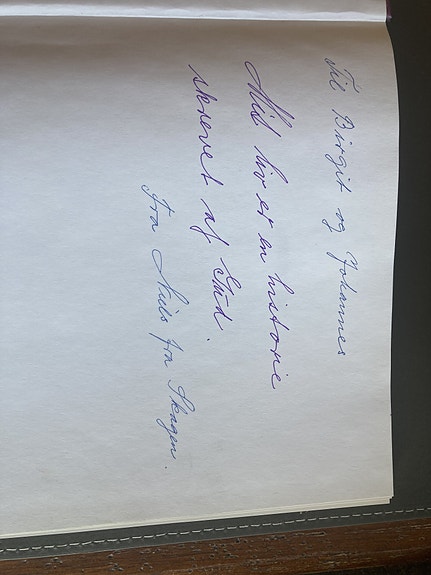 Til Birgit og Johannes
Mit liv er en historie
skrevet af Gud.
Fra Niels fra Skagen.